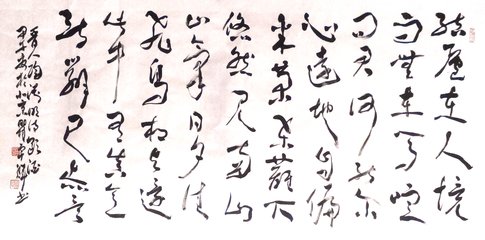 結廬在人境
而無車馬喧
問君何能爾
心遠地自偏
采菊東籬下
悠然見南山
山氣日夕佳
飛鳥相與還
此中有真意
欲辯已忘言
晉人陶淵明詩飲酒
於北京 書